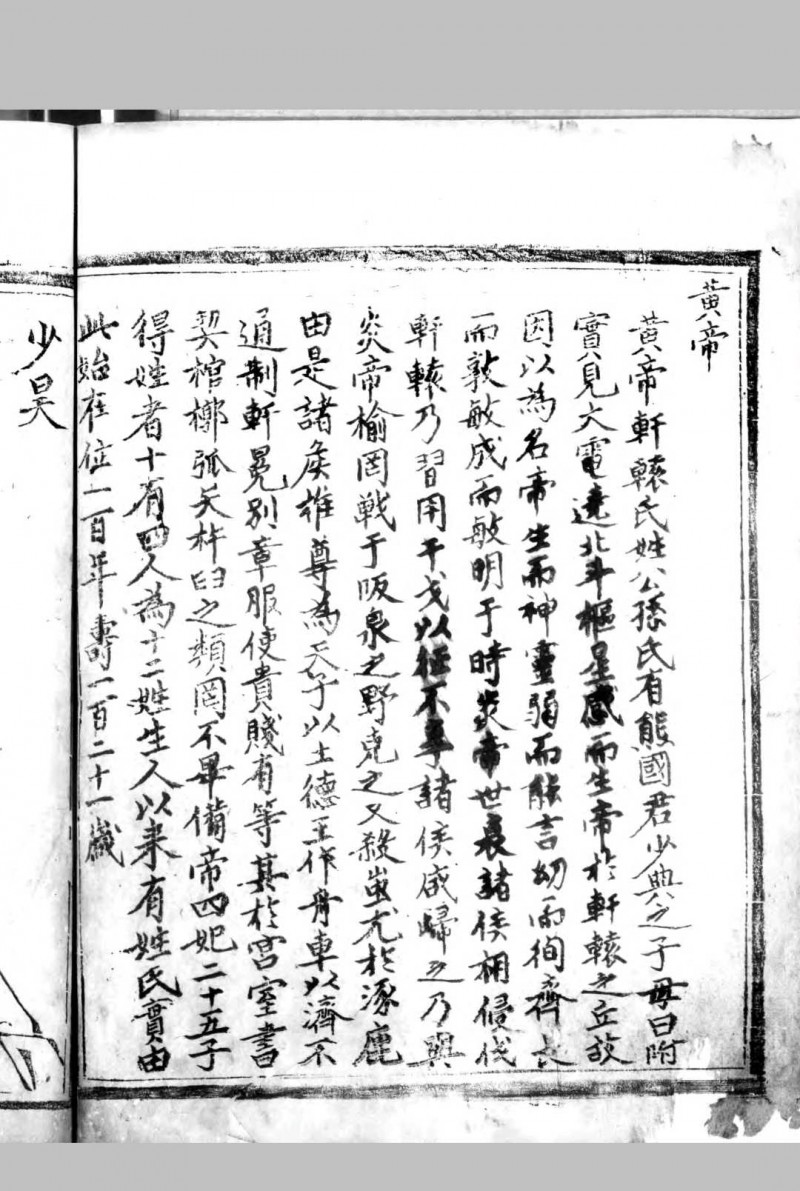 黄帝
黄帝軒轅氏姓公孫氏有熊國君少典之子母曰附
寶見大電遶北斗樞星感而生帝於軒轅之丘故
因以為名帝生而神靈弱而能言幼而徇齊長
而敦敏成而敏明于時炎帝世衰諸侯相侵伐
軒轅乃習用干戈以征不享諸侯咸歸之乃與
炎帝榆罔戦于阪泉之野克之又殺蚩尤於涿鹿
由是諸侯雄尊為天子以土德王作舟車以濟不
通制軒冕别章服使貴賤有等其於宫室書
契棺槨弧矢杵臼之類罔不畢備帝四妃二十五子
得姓者十有四人為十二姓生人以来有姓氏實由
此始在位一百年壽一百二十一歳
少昊